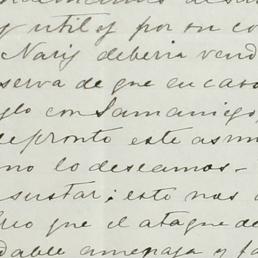 y util y por su co
Nariz deberia vend
serva de que en caso
glo con Samaniego,
de pronto este asun
no lo deseamos-
sustar; esto nos
que el ataque de
dable amenaza y fa